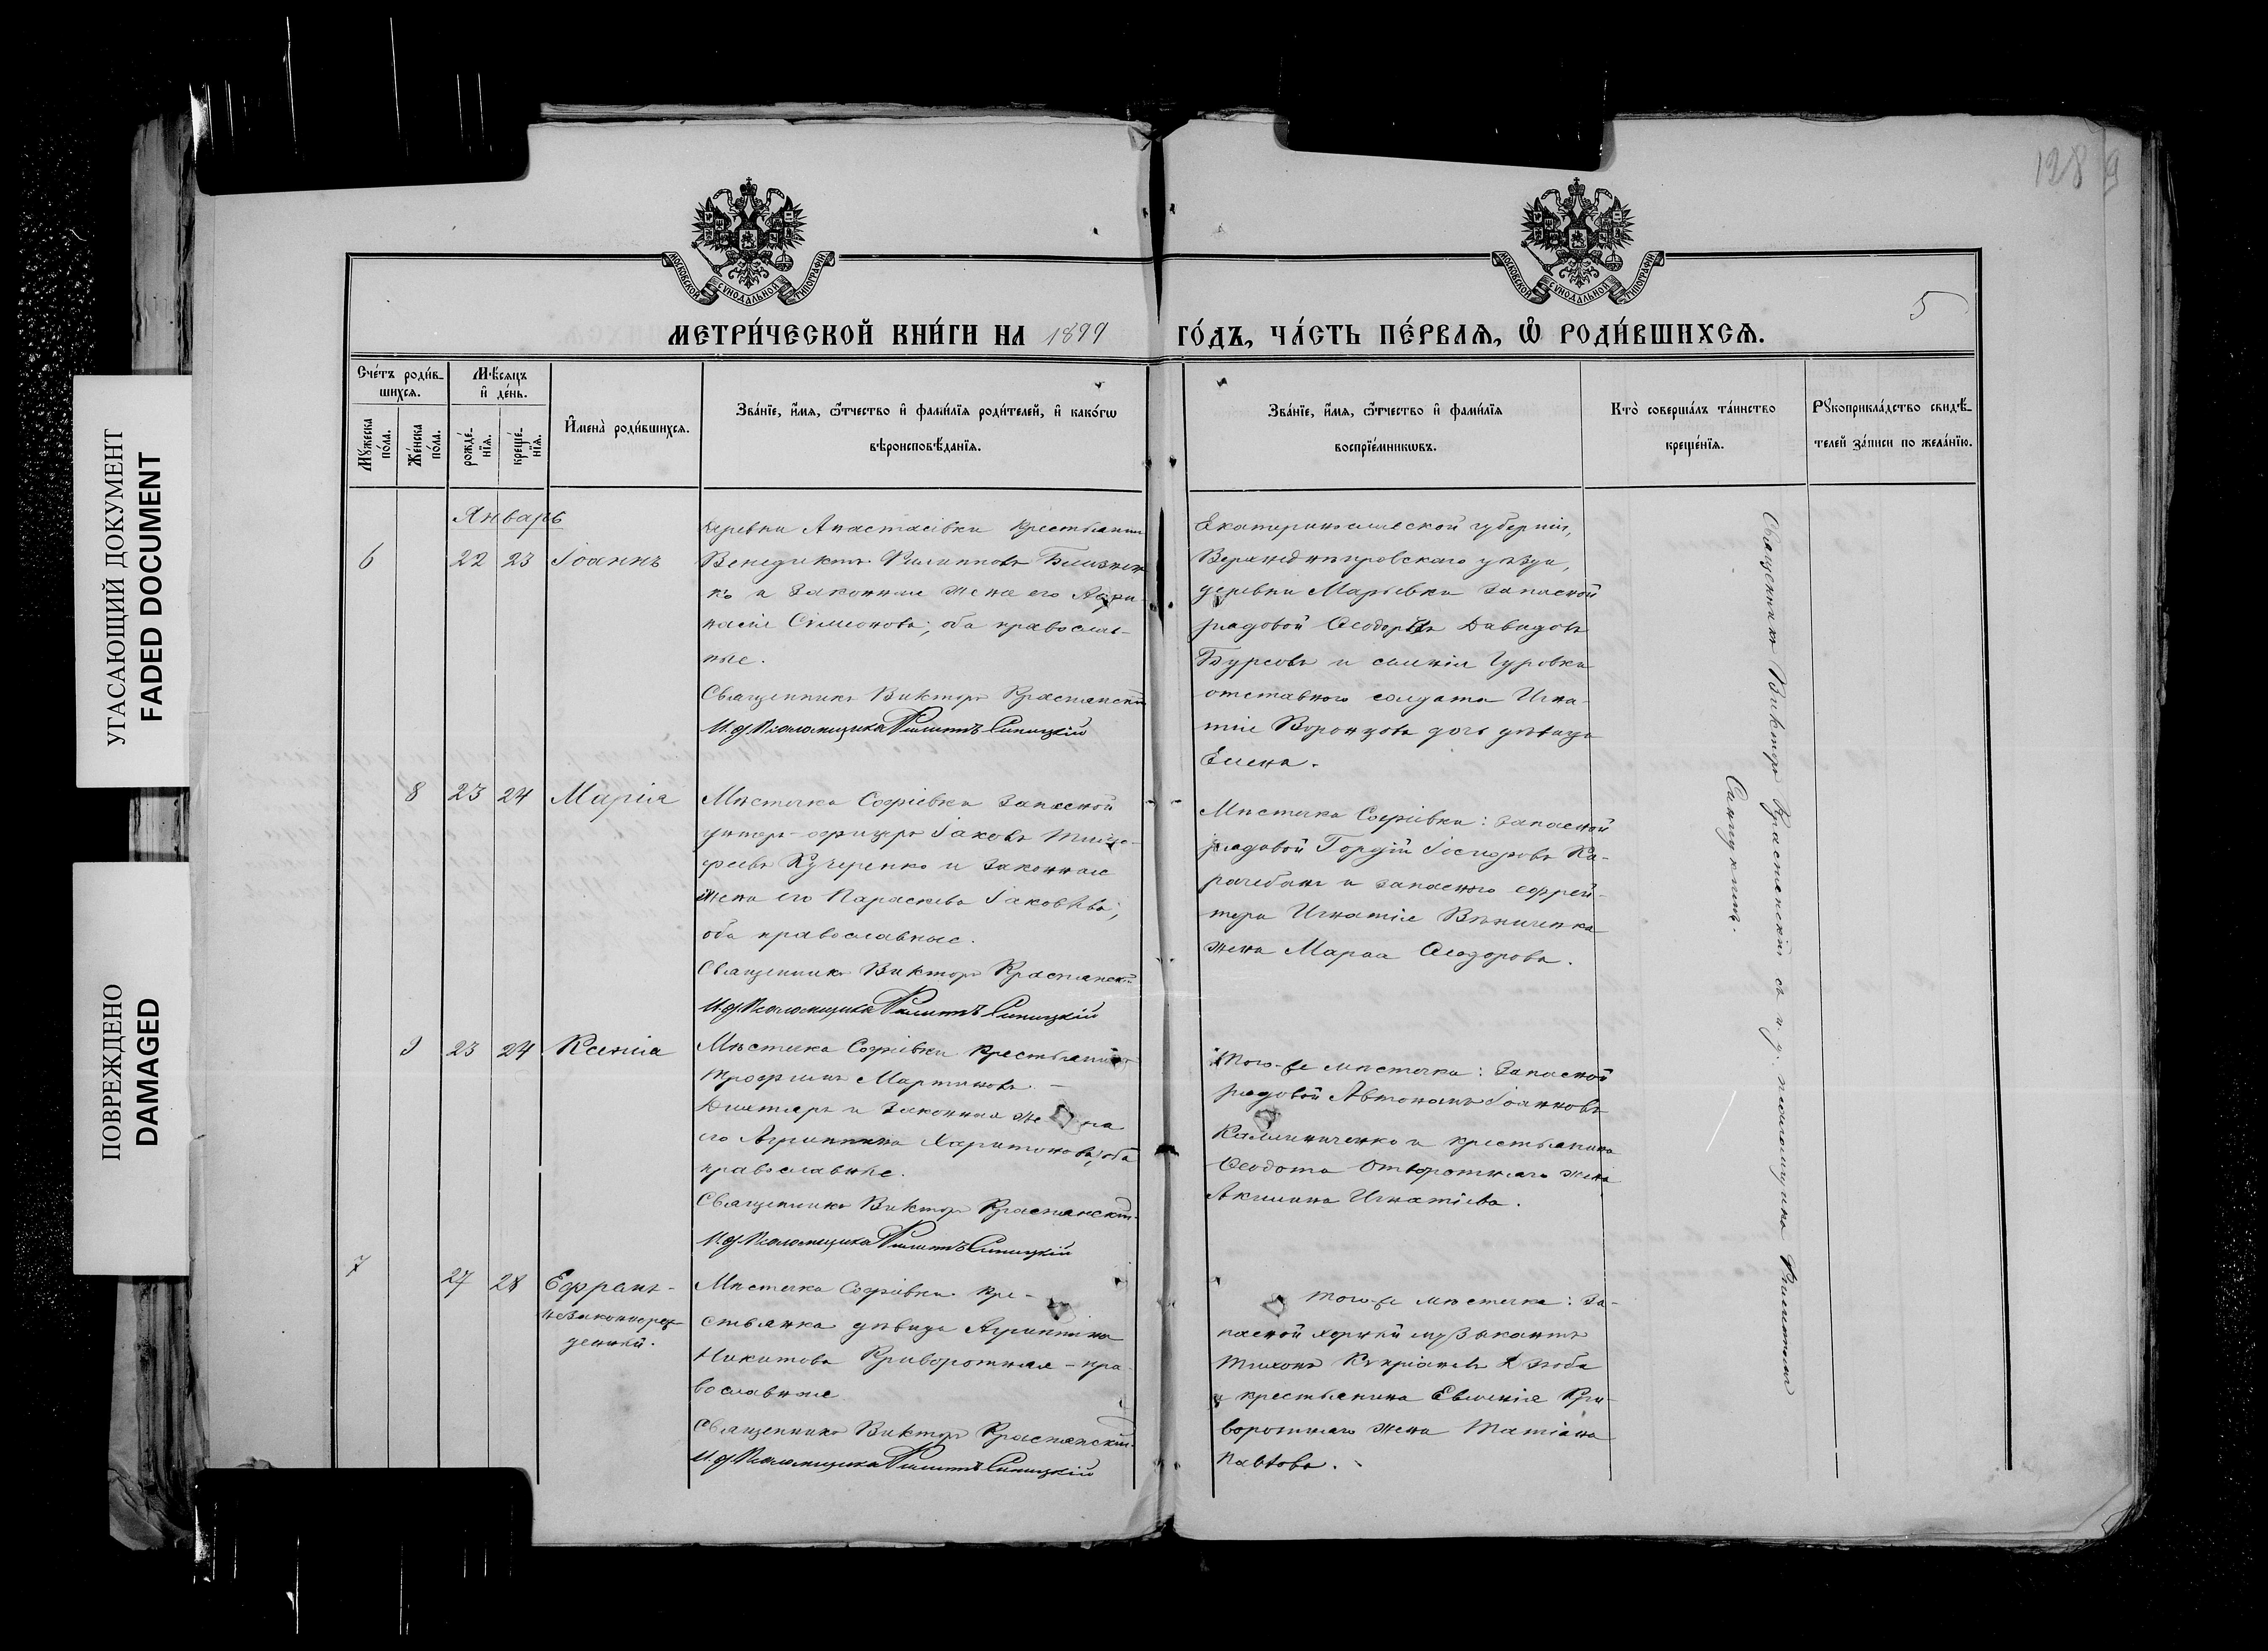 УГАСАЮЩИЙ ДОКУМЕНТ
FADED DOCUMENT
ПОВРЕЖДЕНО
DAMAGED
128
МОСКОВСКОЙ СѴНОДАЛЬНОЙ ТИПОГРАФІИ
МОСКОВСКОЙ СѴНОДАЛЬНОЙ ТИПОГРАФІИ
5
МЕТРИ́ЧЕСКОЙ КНИ́ГИ НА 1899
ГО́ДЪ, ЧА́СТЬ ПЕ́РВАѦ, Ѡ҆ РОДИ́ВШИХСѦ.
Сче́тъ роди́в-
шихсѧ.
Мꙋ́жеска по́ла.
Же́нска по́ла.
Мѣ́сѧцъ
и҆ де́нь.
рожде́-
нїѧ.
креще́-
нїѧ.
И҆мена̀ роди́вшихсѧ.
Зва́нїе, и҆́мѧ, ѻ҆́тчество и҆ фами́лїѧ роди́телей, и҆ како́гѡ
вѣроисповѣ́данїѧ.
Зва́нїе, и҆́мѧ, ѻ҆́тчество и҆ фами́лїѧ
воспрїе́мникѡвъ.
Кто̀ соверша́лъ та́инство
креще́нїѧ.
Рꙋкоприкла́дство свидѣ́-
телей за́писи по жела́нїю.
Январь
6 22 23 Іоаннъ
деревни Анастасіевки крестьянинъ
Венедиктъ Филипповъ Близнен-
ко и законная жена его
Симеонова, оба православ-
ные.
Священникъ Викторъ Краснянскій
И. д. Псаломщика Филиппъ Синицкій
Екатеринославской губерніи,
Верхнеднѣпровскаго уѣзда,
деревни Марьевки запасной
рядовой Ѳеодоръ Давидовъ
Бурсовъ и селенія Гуровки
отставного солдата Игна-
тія Воронцова дочь дѣвица
Елена.
8 23 24 Марія
Мѣстечка Софіевки запасной
унтеръ-офицеръ Іаковъ Тимо-
феевъ Кучеренко и законная
жена его Параскева Іаковлева,
оба православные.
Священникъ Викторъ Краснянскій
И. д. Псаломщика Филиппъ Синицкій
Мѣстечка Софіевки: запасной
рядовой Гордій Іосифовъ Ка-
рачебанъ и запасного ефрей-
тора Игнатія Вѣниченка
жена Марѳа Ѳеодорова.
9 23 24 Ксенія
Мѣстечка Софіевки крестьянинъ
Трофимъ Мартиновъ
Дихтяръ и законная жена
его Агриппина Харитонова, оба
православные.
Священникъ Викторъ Краснянскій
И. д. Псаломщика Филиппъ Синицкій
Того-же мѣстечка: запасной
рядовой Автономъ Іоанновъ
Калиниченко и крестьянина
Ѳеодота Отворотнаго жена
Акилина Игнатіева.
7 27 28 Ефремъ-
незаконорож-
денный.
Мѣстечка Софіевки кре-
стьянка дѣвица Агриппина
Никитова Криворотная - пра-
вославная
Священникъ Викторъ Краснянскій
И. д. Псаломщика Филиппъ Синицкій
Того-же мѣстечка: за-
пасной музыкантъ
Тихонъ Кипріановъ Дзюба
и крестьянина Евгенія Кри-
воротнаго жена Татіана
Павлова.
Священникъ Викторъ Краснянскій съ и. д. псаломщика Филиппомъ
Синицкимъ.